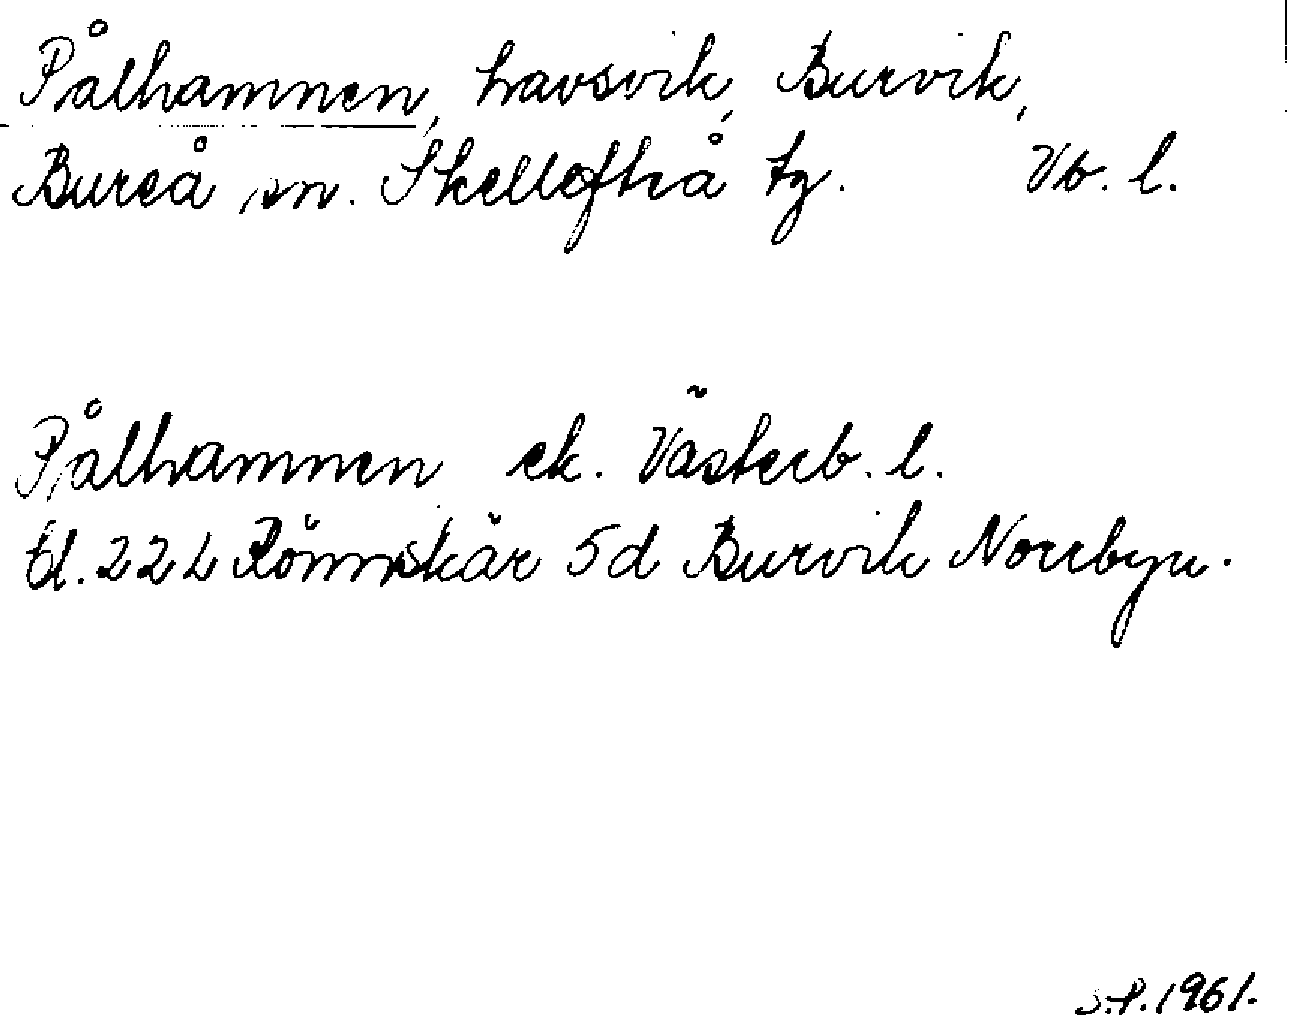 Pålhamnen, havsvik, Burvik,
Bureå sn. Skellefteå tg. Vb. l.
Pålhamnen ek. Västerb. l.
bl. 22 L Rönnskär 5d Burvik Norrbyn.
S.P. 1961.